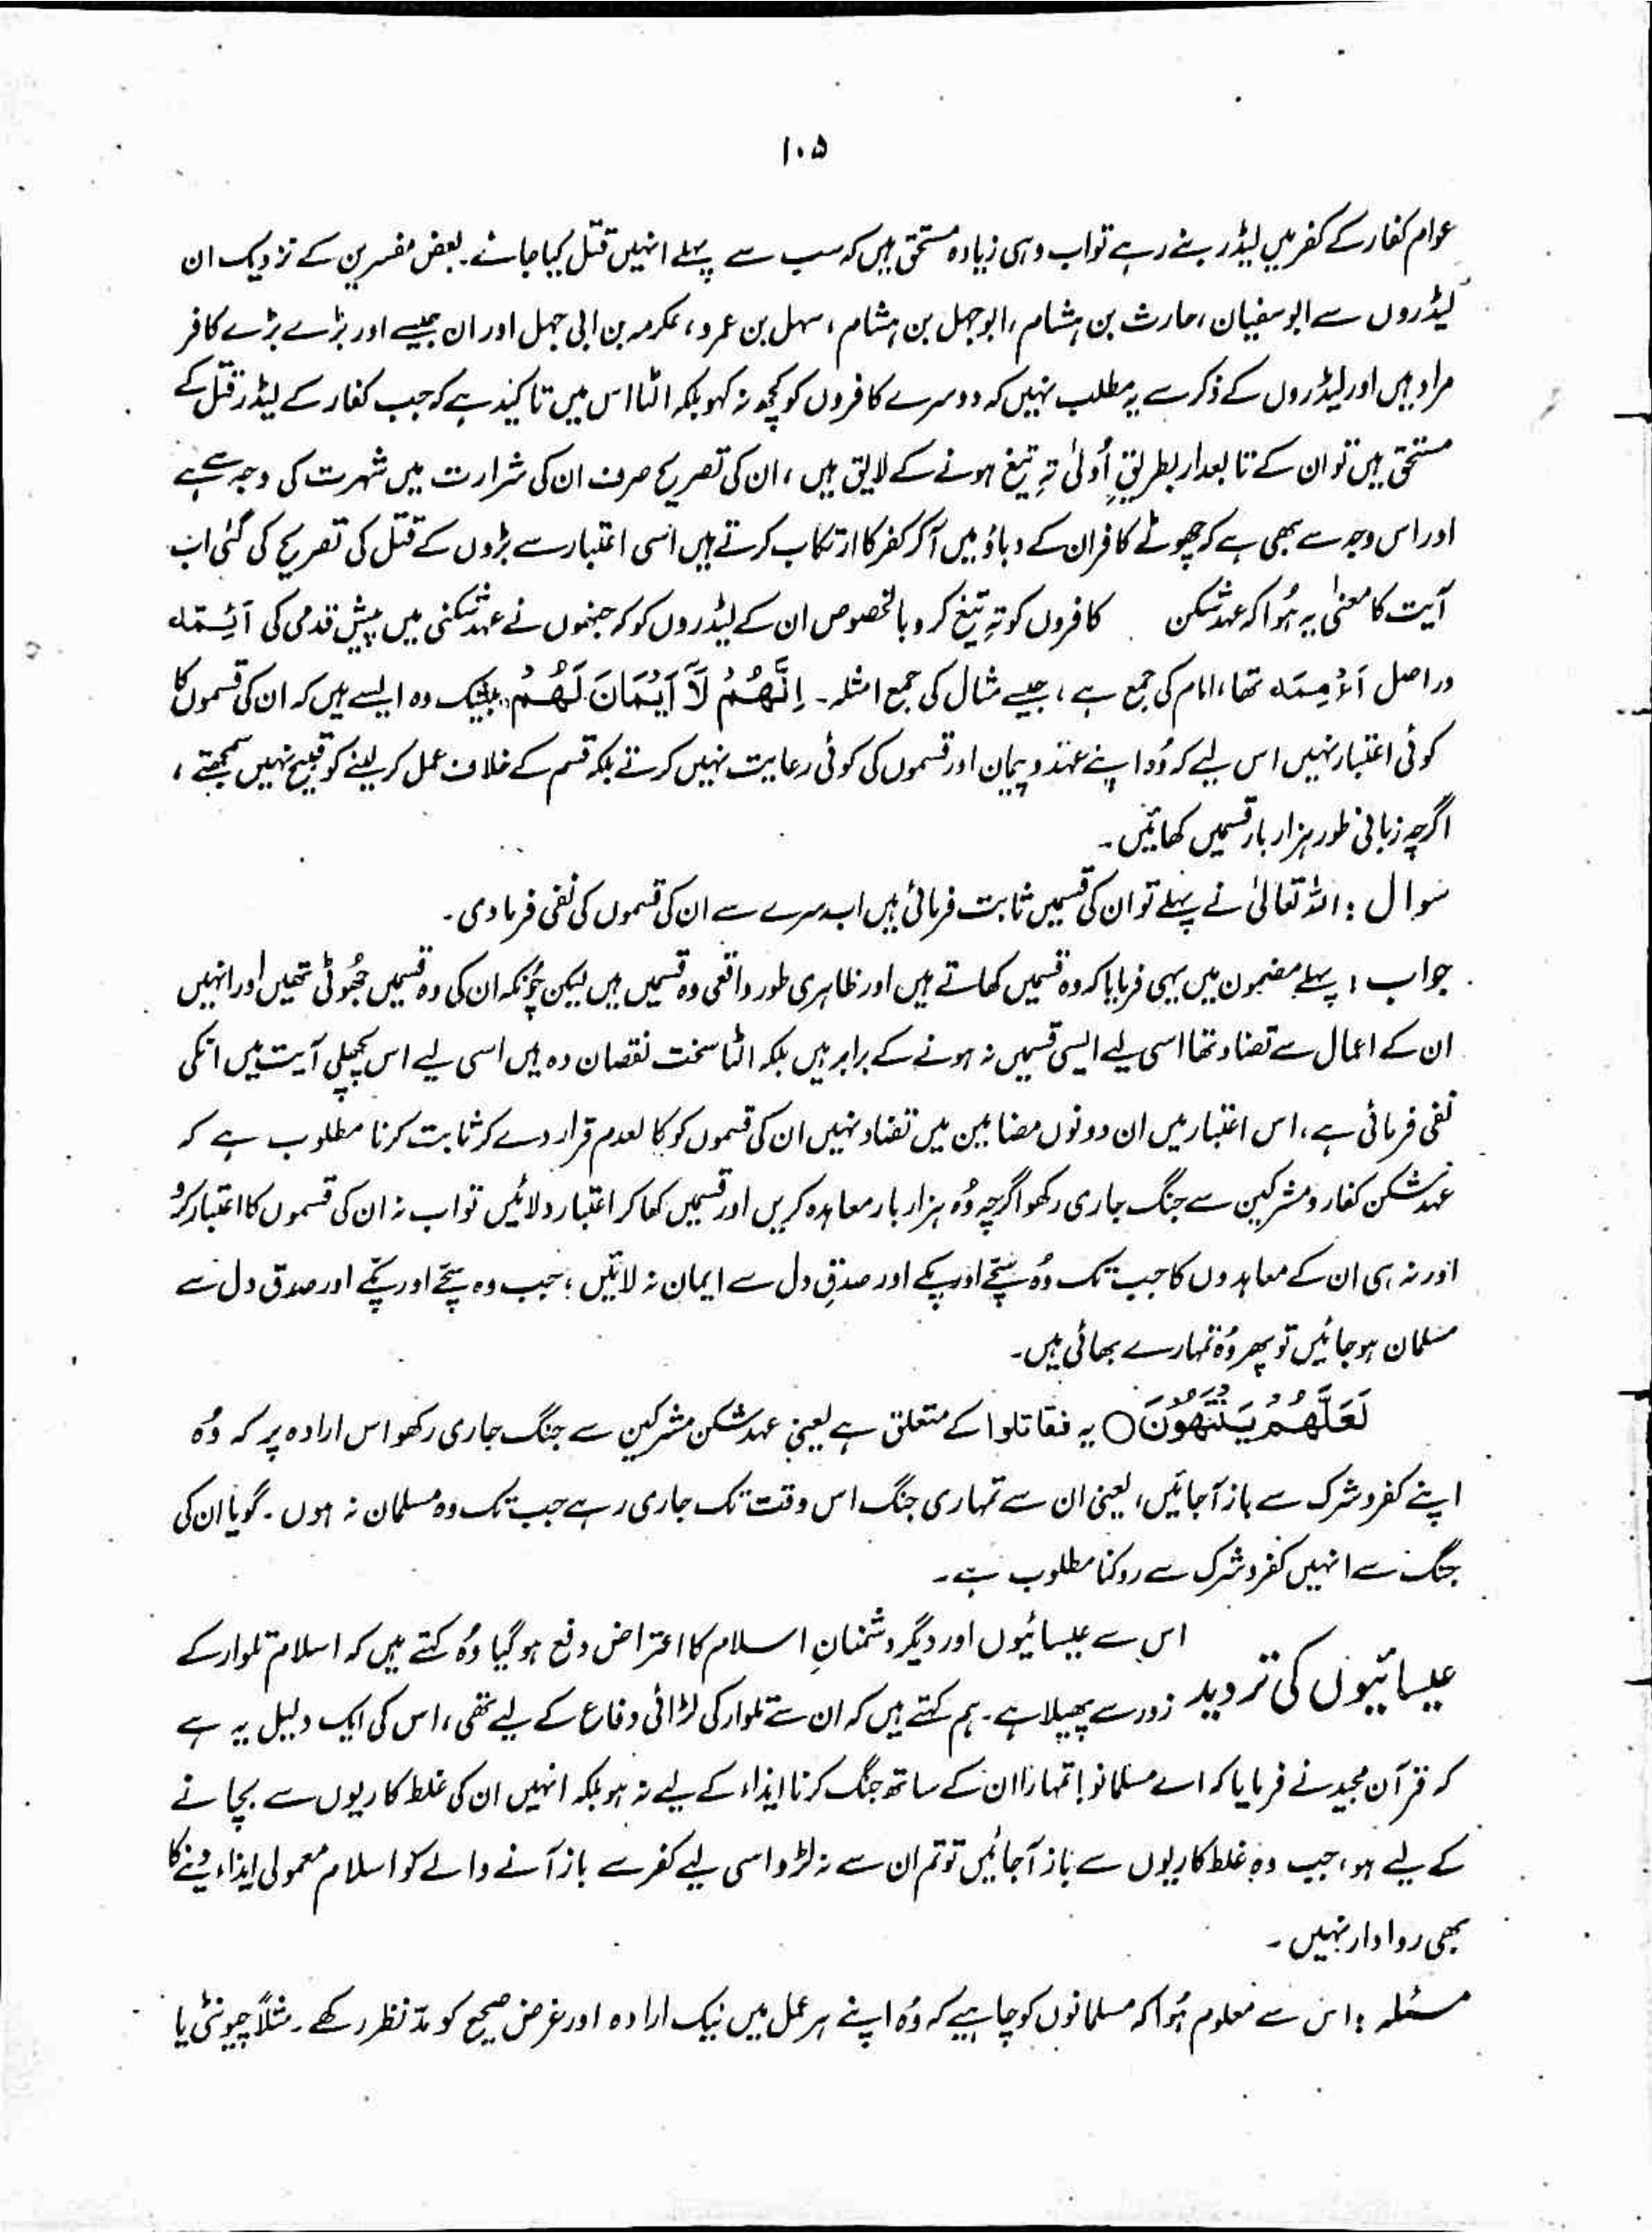 ۱۰۵
عوام کفار کے کفر میں لیڈر بنے رہے تو اب وہی زیادہ مستحق ہیں کہ سب سے پہلے انہیں قتل کیا جائے۔ بعض مفسرین کے نزدیک ان
لیڈروں سے ابو سفیان، حارث بن ہشام، ابوجہل بن ہشام، سہل بن عمرو، عکرمہ بن ابی جہل اور ان جیسے اور بڑے بڑے کافر
مراد ہیں اور لیڈروں کے ذکر سے یہ مطلب نہیں کہ دوسرے کافروں کو کچھ نہ کہو بلکہ الٹا اس میں تاکید ہے کہ جب کفار کے لیڈر قتل کے
مستحق ہیں تو ان کے تابعدار بطریقِ اُولیٰ تہِ تیغ ہونے کے لایق ہیں، ان کی تصریح صرف ان کی شرارت میں شہرت کی وجہ سے ہے
اور اس وجہ سے بھی ہے کہ چھوٹے کافر ان کے دباؤ میں آ کر کفر کا ارتکاب کرتے ہیں اسی اعتبار سے بڑوں کے قتل کی تصریح کی گئی اب
آیت کا معنیٰ یہ ہُوا کہ عہد شکن کافروں کو تہِ تیغ کرو بالخصوص ان کے لیڈروں کو کہ جنھوں نے عہد شکنی میں پیش قدمی کی آئِمّہ
در اصل أَءْمِمَہ تھا، امام کی جمع ہے، جیسے مثال کی جمع امثلہ۔ اِنَّهُمْ لَآ اَيْمَانَ لَهُمْ بیشک وہ ایسے ہیں کہ ان کی قسموں کا
کوئی اعتبار نہیں اس لیے کہ وُہ اپنے عہد و پیمان اور قسموں کی کوئی رعایت نہیں کرتے بلکہ قسم کے خلاف عمل کر لینے کو قبیح نہیں سمجھتے،
اگرچہ زبانی طور ہزار بار قسمیں کھائیں۔
سوال : اللہ تعالیٰ نے پہلے تو ان کی قسمیں ثابت فرمائی ہیں اب سرے سے ان کی قسموں کی نفی فرما دی۔
جواب : پہلے مضمون میں یہی فرمایا کہ وہ قسمیں کھاتے ہیں اور ظاہری طور واقعی وہ قسمیں ہیں لیکن چُونکہ ان کی وہ قسمیں جُھوٹی تھیں اور انہیں
ان کے اعمال سے تضاد تھا اسی لیے ایسی قسمیں نہ ہونے کے برابر ہیں بلکہ الٹا سخت نقصان دہ ہیں اسی لیے اس پچھلی آیت میں انکی
نفی فرمائی ہے، اس اعتبار میں ان دونوں مضامین میں تضاد نہیں ان کی قسموں کو کالعدم قرار دے کر ثابت کرنا مطلوب ہے کہ
عہد شکن کفار و مشرکین سے جنگ جاری رکھو اگرچہ وُہ ہزار بار معاہدہ کریں اور قسمیں کھا کر اعتبار دلائیں تو اب نہ ان کی قسموں کا اعتبار کرو
اور نہ ہی ان کے معاہدوں کا جب تک وُہ سچّے اور پکے اور صدقِ دل سے ایمان نہ لائیں ؛ جب وہ سچّے اور پکّے اور صدق دل سے
مسلمان ہو جائیں تو پھر وُہ تمہارے بھائی ہیں۔
لَعَلَّهُمْ يَنْتَهُوْنَ○ یہ فقاتلوا کے متعلق ہے یعنی عہد شکن مشرکین سے جنگ جاری رکھو اس ارادہ پر کہ وُہ
اپنے کفر و شرک سے باز آ جائیں، یعنی ان سے تمہاری جنگ اس وقت تک جاری رہے جب تک وہ مسلمان نہ ہوں۔ گویا ان کی
جنگ سے انہیں کفر و شرک سے روکنا مطلوب ہے۔
عیسائیوں کی تردید
اس سے عیسائیوں اور دیگر دشمنانِ اسلام کا اعتراض دفع ہو گیا وُہ کہتے ہیں کہ اسلام تلوار کے
زور سے پھیلا ہے۔ ہم کہتے ہیں کہ ان سے تلوار کی لڑائی دفاع کے لیے تھی، اس کی ایک دلیل یہ ہے
کہ قرآن مجید نے فرمایا کہ اے مسلمانو! تمہارا ان کے ساتھ جنگ کرنا ایذاء کے لیے نہ ہو بلکہ انہیں ان کی غلط کاریوں سے بچانے
کے لیے ہو، جب وہ غلط کاریوں سے باز آ جائیں تو تم ان سے نہ لڑو اسی لیے کفر سے باز آنے والے کو اسلام معمولی ایذاء دینے کا
بھی روادار نہیں۔
مسئلہ : اس سے معلوم ہُوا کہ مسلمانوں کو چاہیے کہ وُہ اپنے ہر عمل میں نیک ارادہ اور غرض صحیح کو مدّ نظر رکھے۔ مثلاً چیونٹی یا